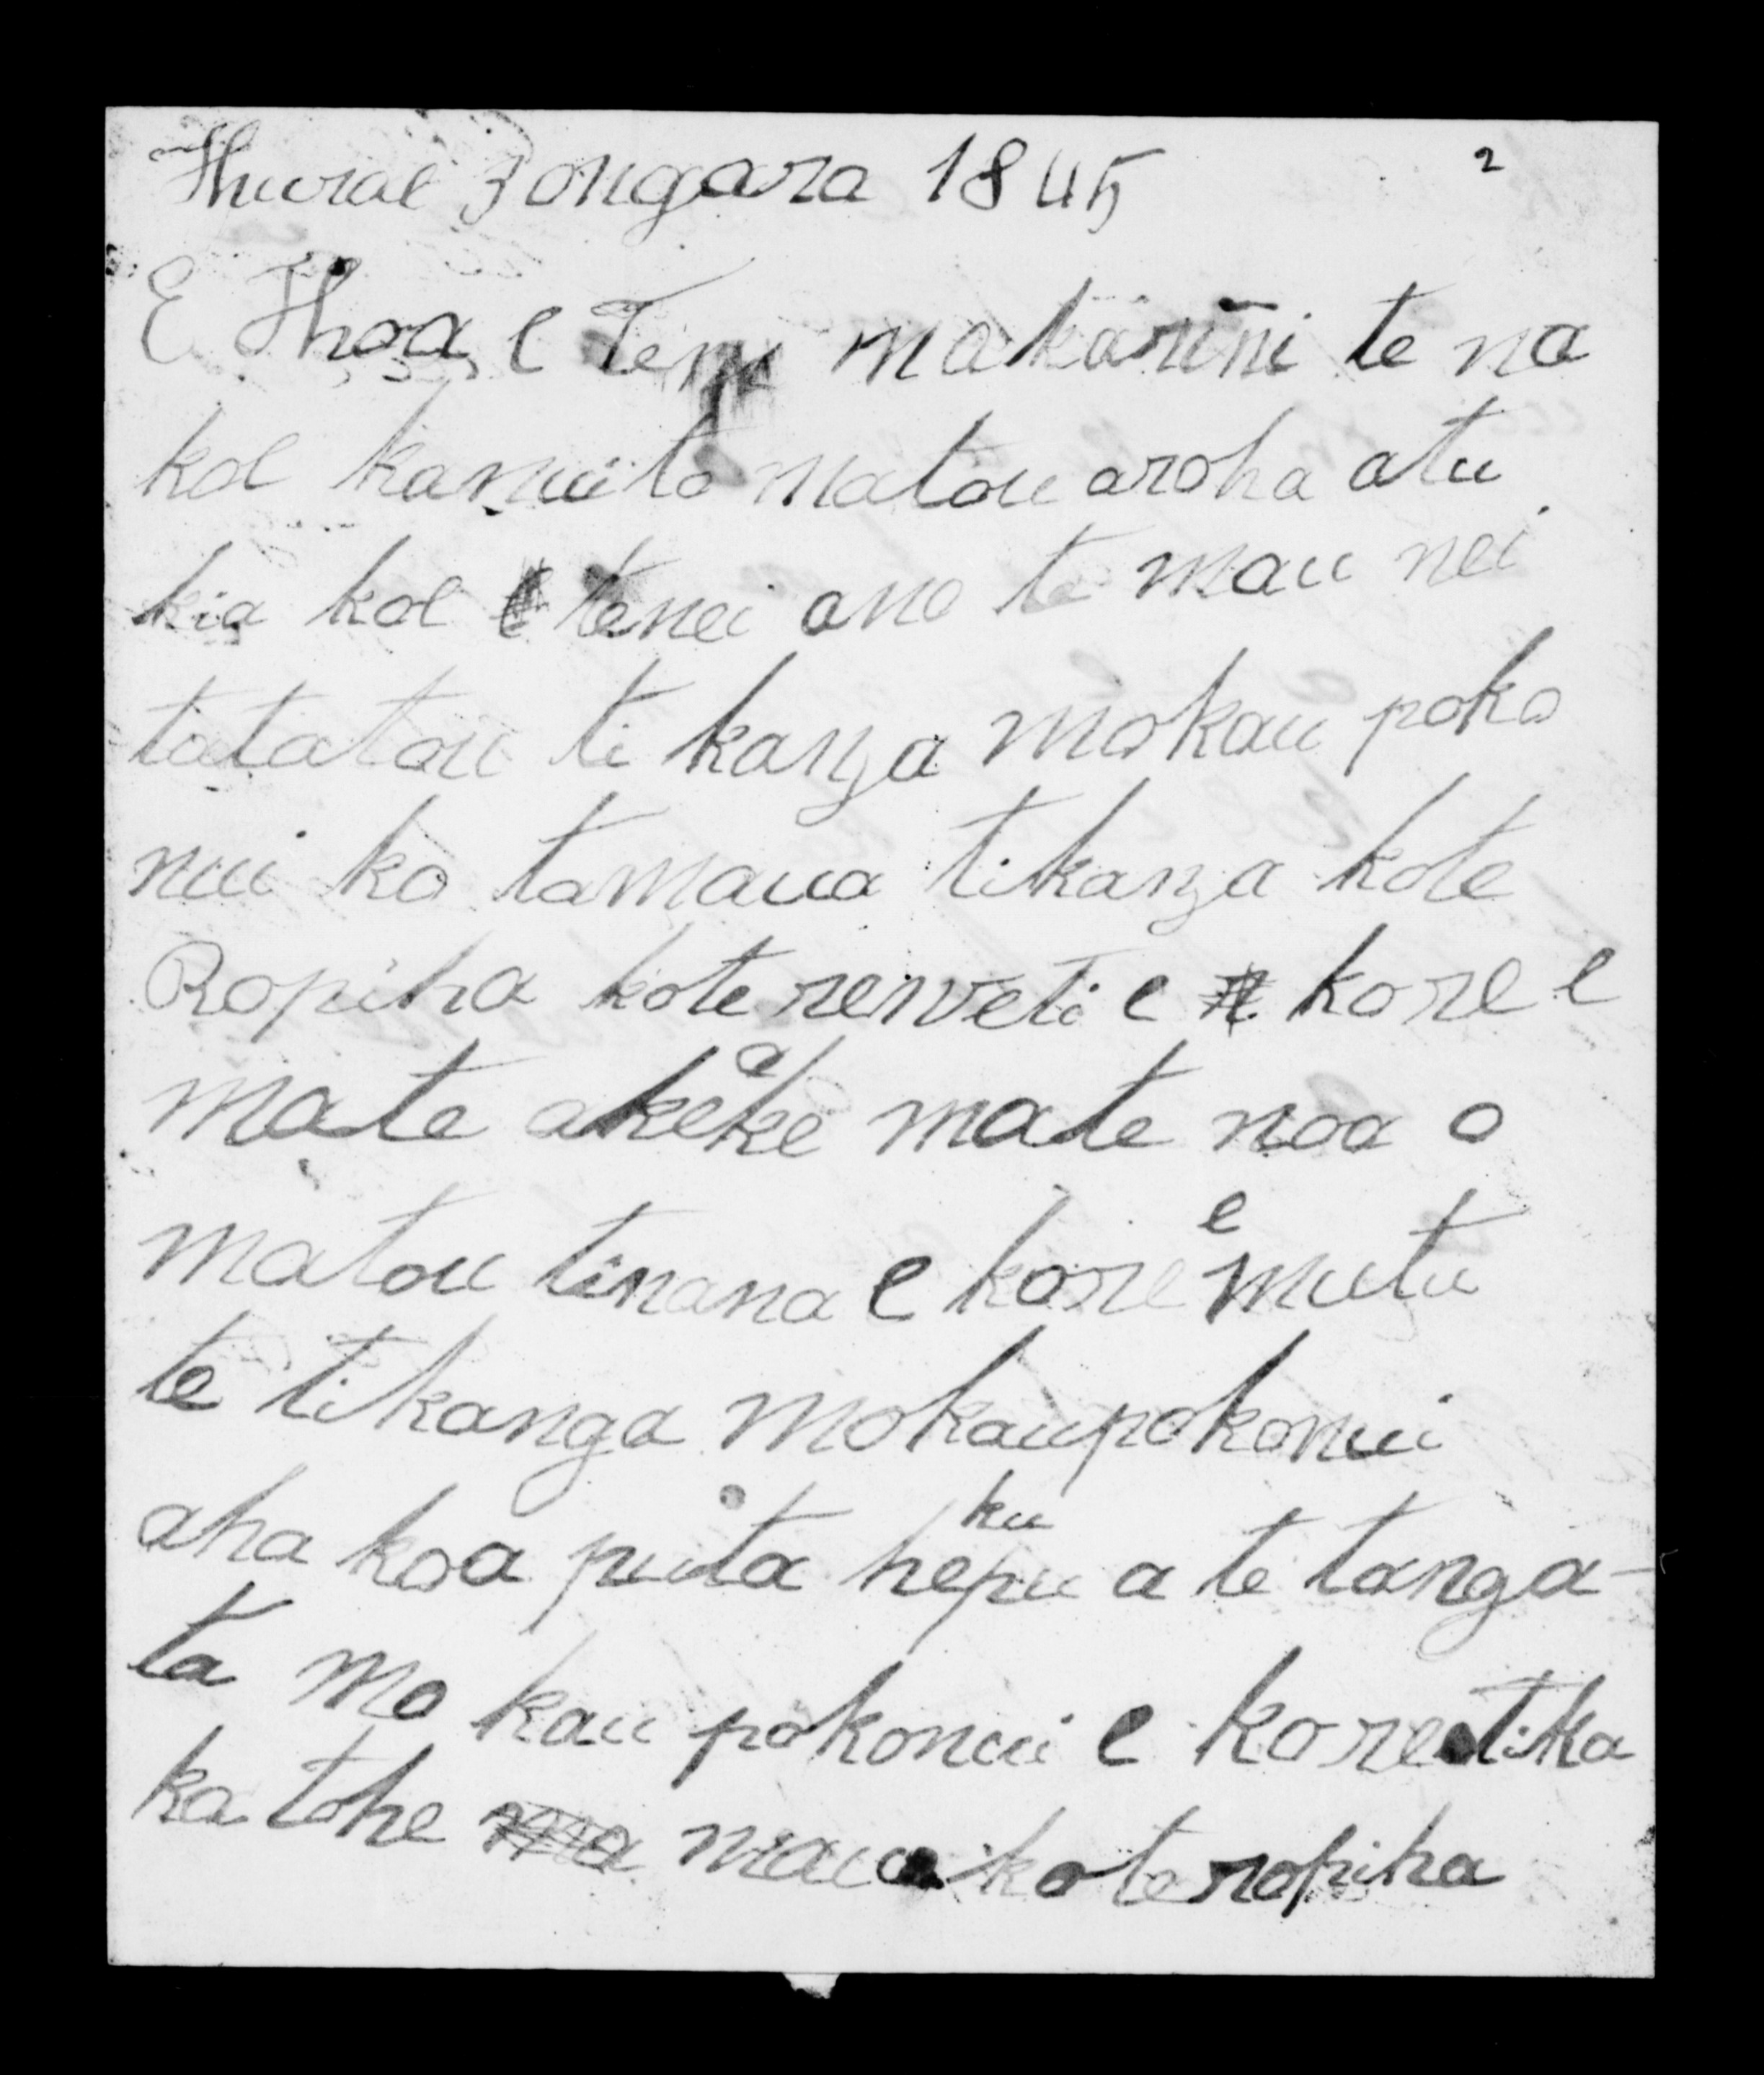 Hurae 3 ongara 1845 2
E Hhoa e Teme makarini te na
koe kanui to matou aroha atu
kia koe tenei ano te mau nei
tatatou ti kanga mokau poko
nui ko tamaua tikanga kote
Ropiha kote renveti e kore e
mate ake ake mate noa o
matou tinana e kore e mutu
te tikanga mokaupokonui
aha koa puta heku pu a te tanga-
ta mo kau pokonui e kore tika
ka tohe maua kote ropiha